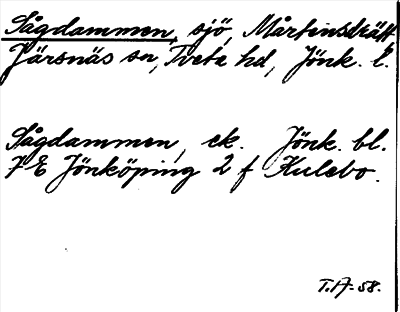 Sågdammen, sjö, Mårtensträtt,
Järsnäs sn, Tveta hd, Jönk. l.
Sågdammen, ek. Jönk. bl.
7 E Jönköping 2 f Kulebo.
T.A-58.